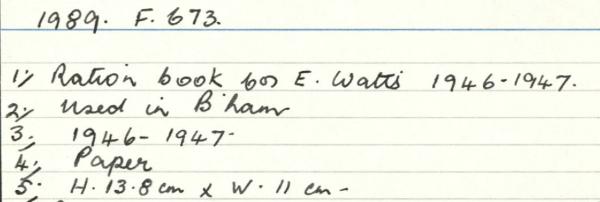 1989. F. 673.
1) Ration book for E. Watts 1946-1947.
2) Used in B'ham
3. 1946-1947.
4) Paper
5. H. 13.8 cm x W. 11 cm -